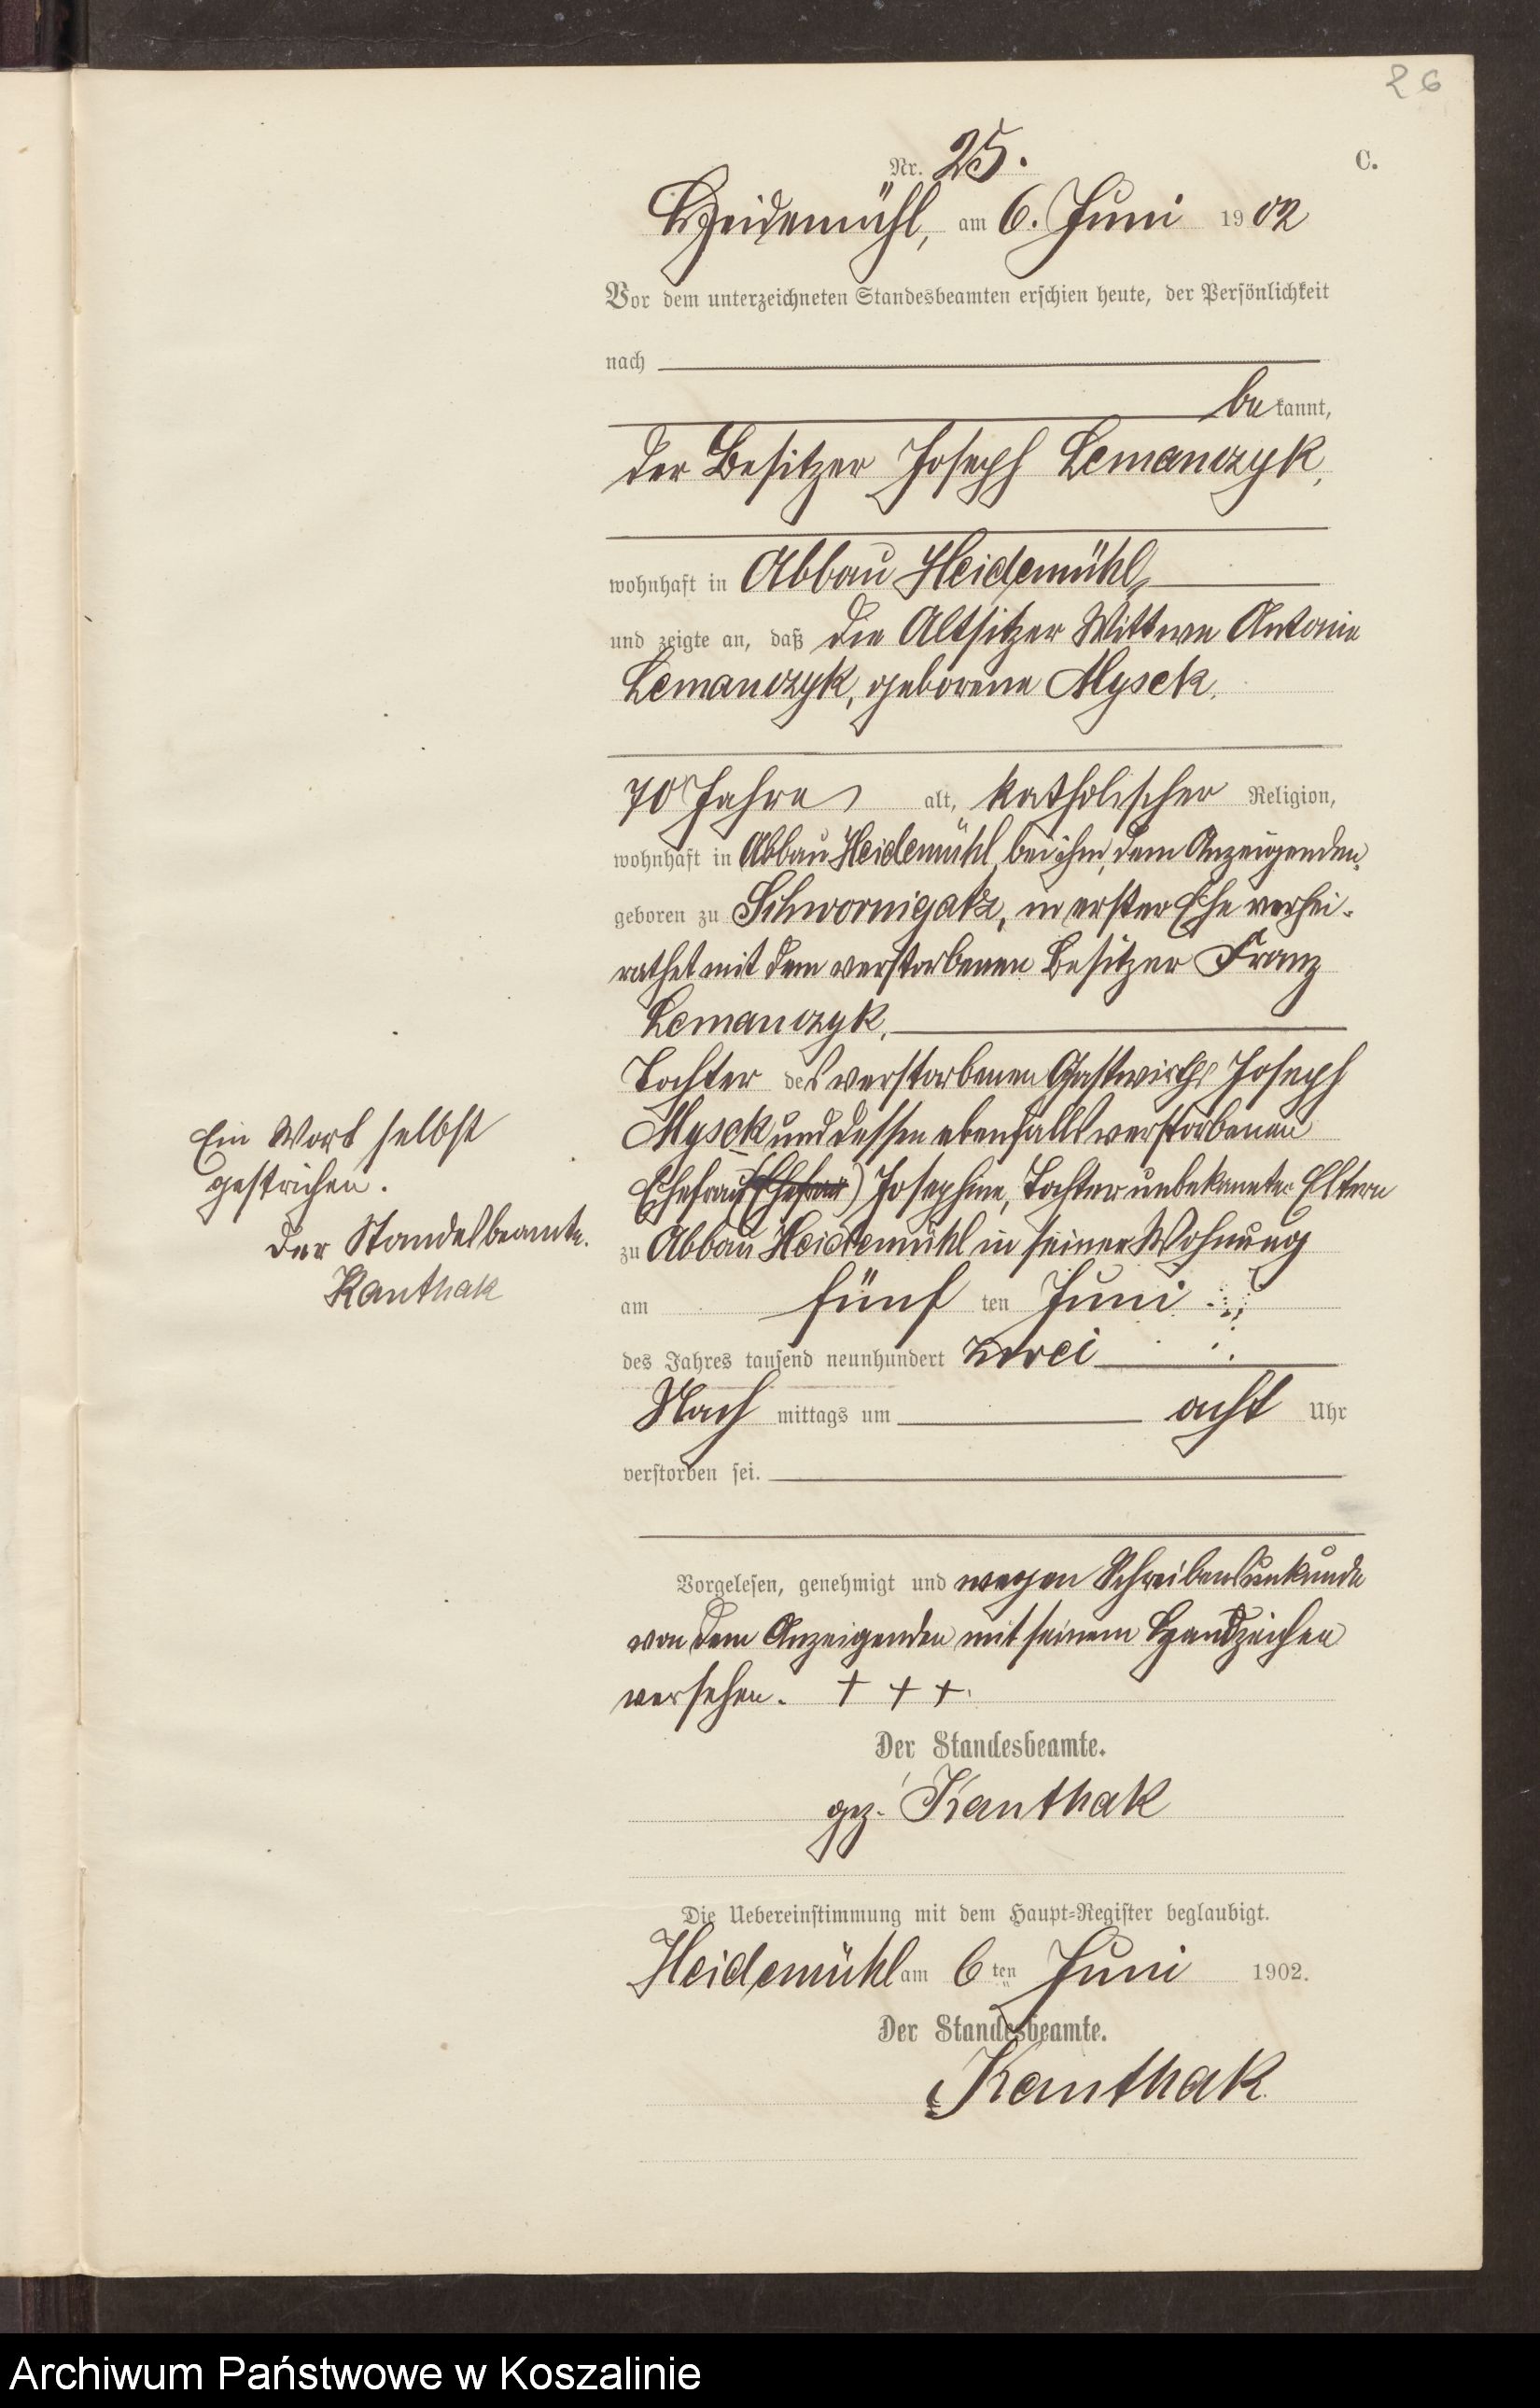 26
C.
Nr. 25.
Heidemühl, am 6. Juni 1902
Vor dem unterzeichneten Standesbeamten erschien heute, der Persönlichkeit
nach
bekannt,
der Besitzer Joseph Lemanczyk,
wohnhaft in Abbau Heidemühl,
und zeigte an, daß die Altsitzer Wittwe Antonie
Lemanczyk, geborene Mysek,
70 Jahre alt, katholischer Religion,
wohnhaft in Abbau Heidemühl, bei ihm, dem Anzeigenden,
geboren zu Schwornigatz, in erster Ehe verhei-
rathet mit dem verstorbenen Besitzer Franz
Lemanczyk,
Tochter des verstorbenen Gastwirths Joseph
Mysek und dessen ebenfalls verstorbenen
Ehefrau (Ehefrau) Josephine, Tochter unbekannter Eltern
zu Abbau Heidemühl in seiner Wohnung
am fünf ten Juni
des Jahres tausend neunhundert zwei
Nach mittags um acht Uhr
verstorben sei.
Ein Wort selbst
gestrichen.
Der Standesbeamte.
Kanthak
Vorgelesen, genehmigt und wegen Schreibensunkunde
von dem Anzeigenden mit seinem Handzeichen
versehen. + + +.
Der Standesbeamte.
gez. Kanthak
Die Uebereinstimmung mit dem Haupt=Register beglaubigt.
Heidemühl am 6ten Juni 1902.
Der Standesbeamte.
Kanthak.
Archiwum Państwowe w Koszalinie